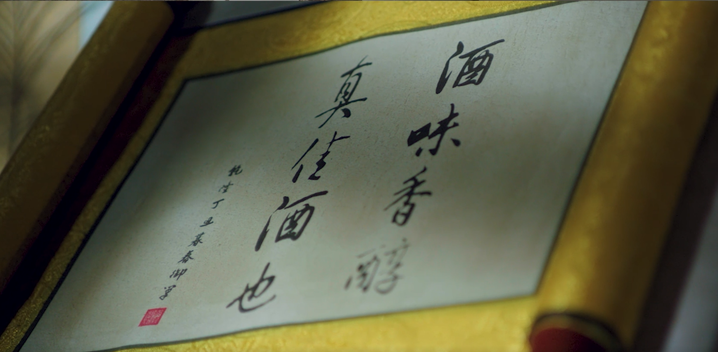 酒味香醇
真佳酒也
乾隆丁丑暮春御笔